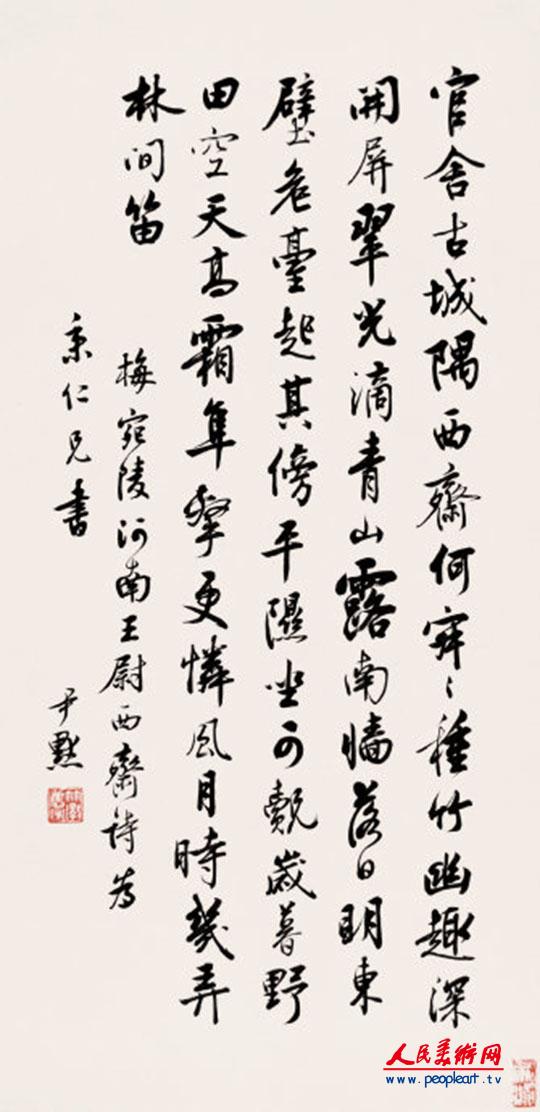 官舍古城隅西齋何寂〻種竹幽趣深
開屏翠光滴青山露南牆落日明東
壁危臺起其傍平隰坐可覿歲暮野
田空天高霜隼擊更憐風月時幾弄
林間笛
梅宛陵河南王尉西齋詩為
秉仁兄書
尹默
人民美術网
www.peopleart.tv